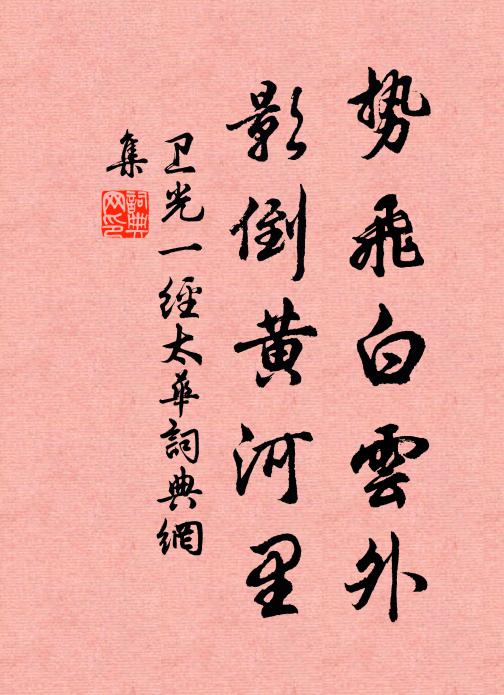 势飛白雲外
影倒黄河里
卫光一經太華詞典網
集
詞典
网印